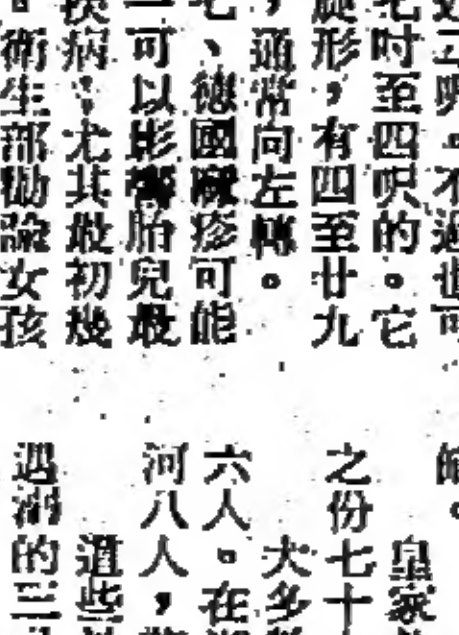 三呎。不過也可
吋至四呎的。它
旋形，有四至廿九
，通常向左轉。
七、德國痲疹可能
可以影響胎兒最
病，尤其最初幾
。衛生部勸諭女孩
皇家
之份七十
大多
六人。在
河八人，
這些
遇溺的三